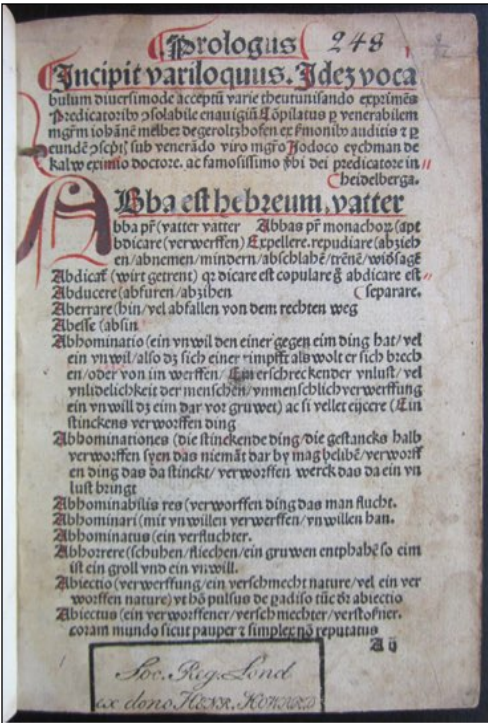 Prologus 248
Incipit variloquus. Idez voca
bulum diuersimode acceptū varie theutunisando exprimēs
Predicatoribꝰ ꝯsolabile enauigiū Cōpilatus ꝑ venerabilem
mgr̄m iohānē melber degeroltzhofen ex ẜmonibꝰ auditis ⁊ ꝑ
eundē ꝯscptꝭ sub venerādo viro mgr̄o Jodoco eychman de
kalw eximio doctore. ac famosissimo ꝟbi dei predicatore in//
heidelberga.
ABba est hebreum, vatter
bba pr̄ (vatter vatter Abbas pr̄ monachoꝝ (apt
bdicare (verwerffen) Expellere. repudiare (abzieh
en/abnemen/mindern/abschlahē/trēnē/widsagē
Abdicat (wirt getrent) qꝛ dicare est copulare g̊ abdicare est//
Abducere (abfuren/abzihen separare.
Aberrare (hin/vel abfallen von dem rechten weg
Abesse (absin
Abhominatio (ein vnwil den einer gegen eim ding hat/vel
ein vnwil/also dz sich einer rimpfft als wolt er sich brech
en/oder von im werffen/Ein erschreckender vnlust/vel
vnlidelichkeit der menschen/vnmenschlich verwerffung
ein vnwill dz eim dar vor gruwet) ac si vellet eijcere (Ein
stinckens verworffen ding
Abhominationes (die stinckende ding/die gestancks halb
verworffen syen das niemāt dar by mag belibē/verworff
en ding das da stinckt/verworffen werck das da ein vn
lust bringt
Abhominabilis res (verworffen ding das man flucht.
Abhominari (mit vnwillen verwerffen/vnwillen han.
Abhominatus (ein verfluchter.
Abhorrere (schuhen/fliechen/ein gruwen entphahē so eim
ist ein groll vnd ein vnwill.
Abiectio (verwerffung/ein verschmecht nature/vel ein ver
worffen nature) vt hō pulsus de ꝑadiso tūc dr̄ abiectio
Abiectus (ein verworffener/verschmechter/verstoßner.
coram mundo sicut pauper ⁊ simplex nō reputatus
A ij
Soc. Reg. Lond
ex dono HENR. HOWARD